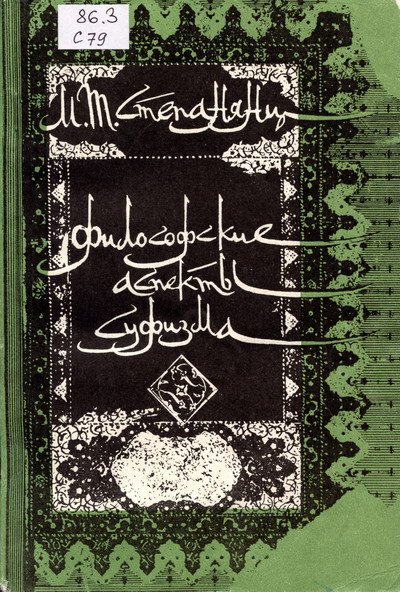 86.3
С79
М.Т. Степанянц
философские
аспекты
суфизма